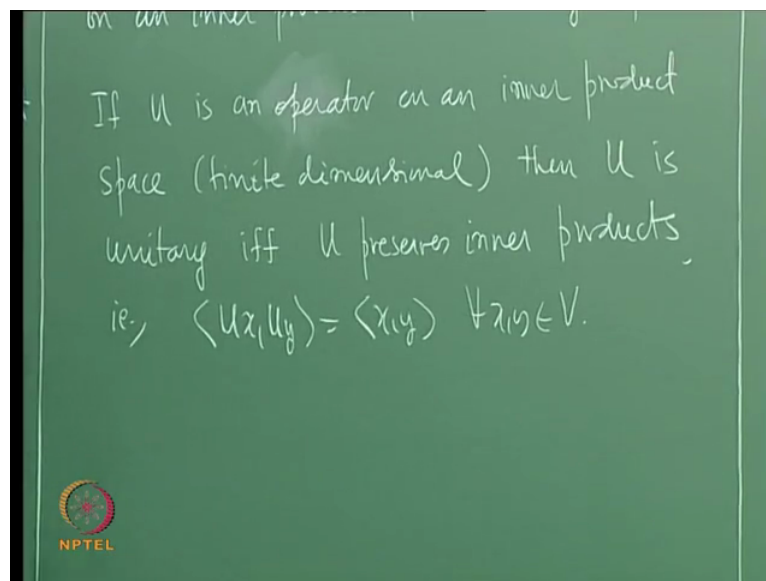 on an inner
If U is an operator on an inner product
space (finite dimensional) then U is
unitary iff U preserves inner products.
ie., ⟨Ux, Uy⟩ = ⟨x, y⟩ ∀ x, y ∈ V.
NPTEL